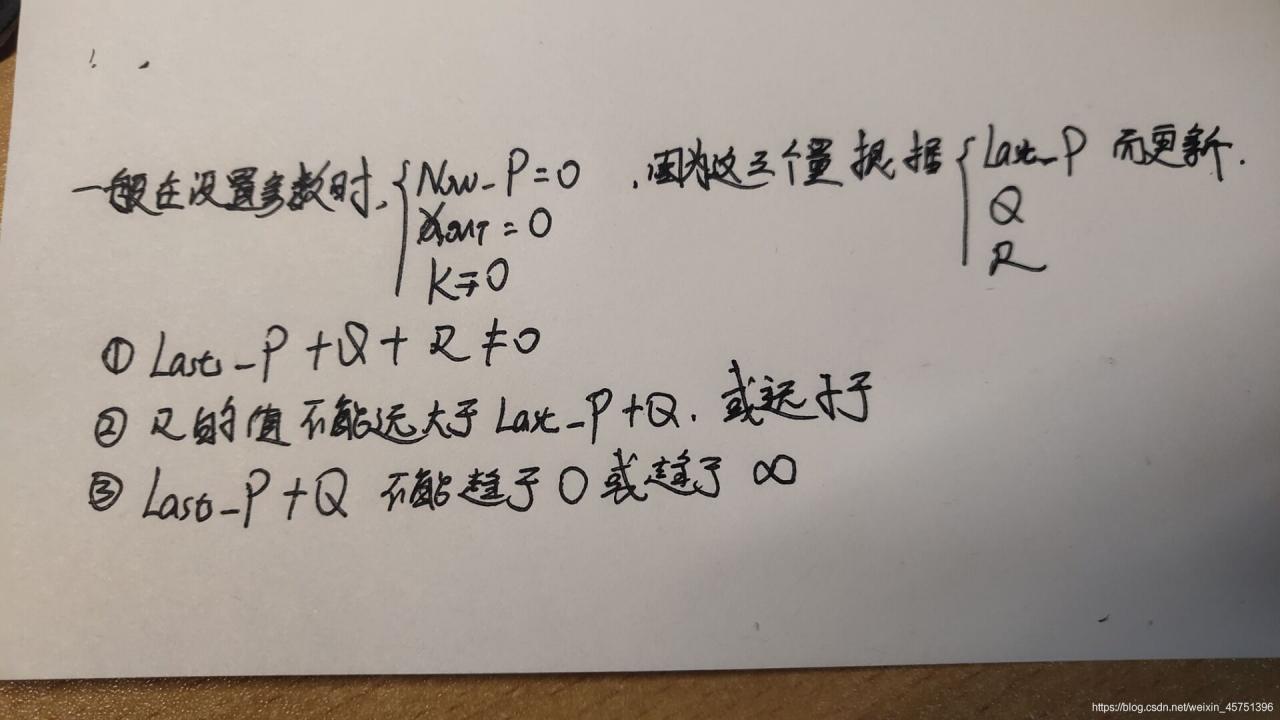 一般在设置参数时,{Now_P=0 ,因为这三个量根据{Last_P 而更新.
Xout=0 Q
K=0 R
① Last_P+Q+R≠0
② R的值不能远大于Last_P+Q.或远小于
③ Last_P+Q 不能趋于0或趋于∞
https://blog.csdn.net/weixin_45751396